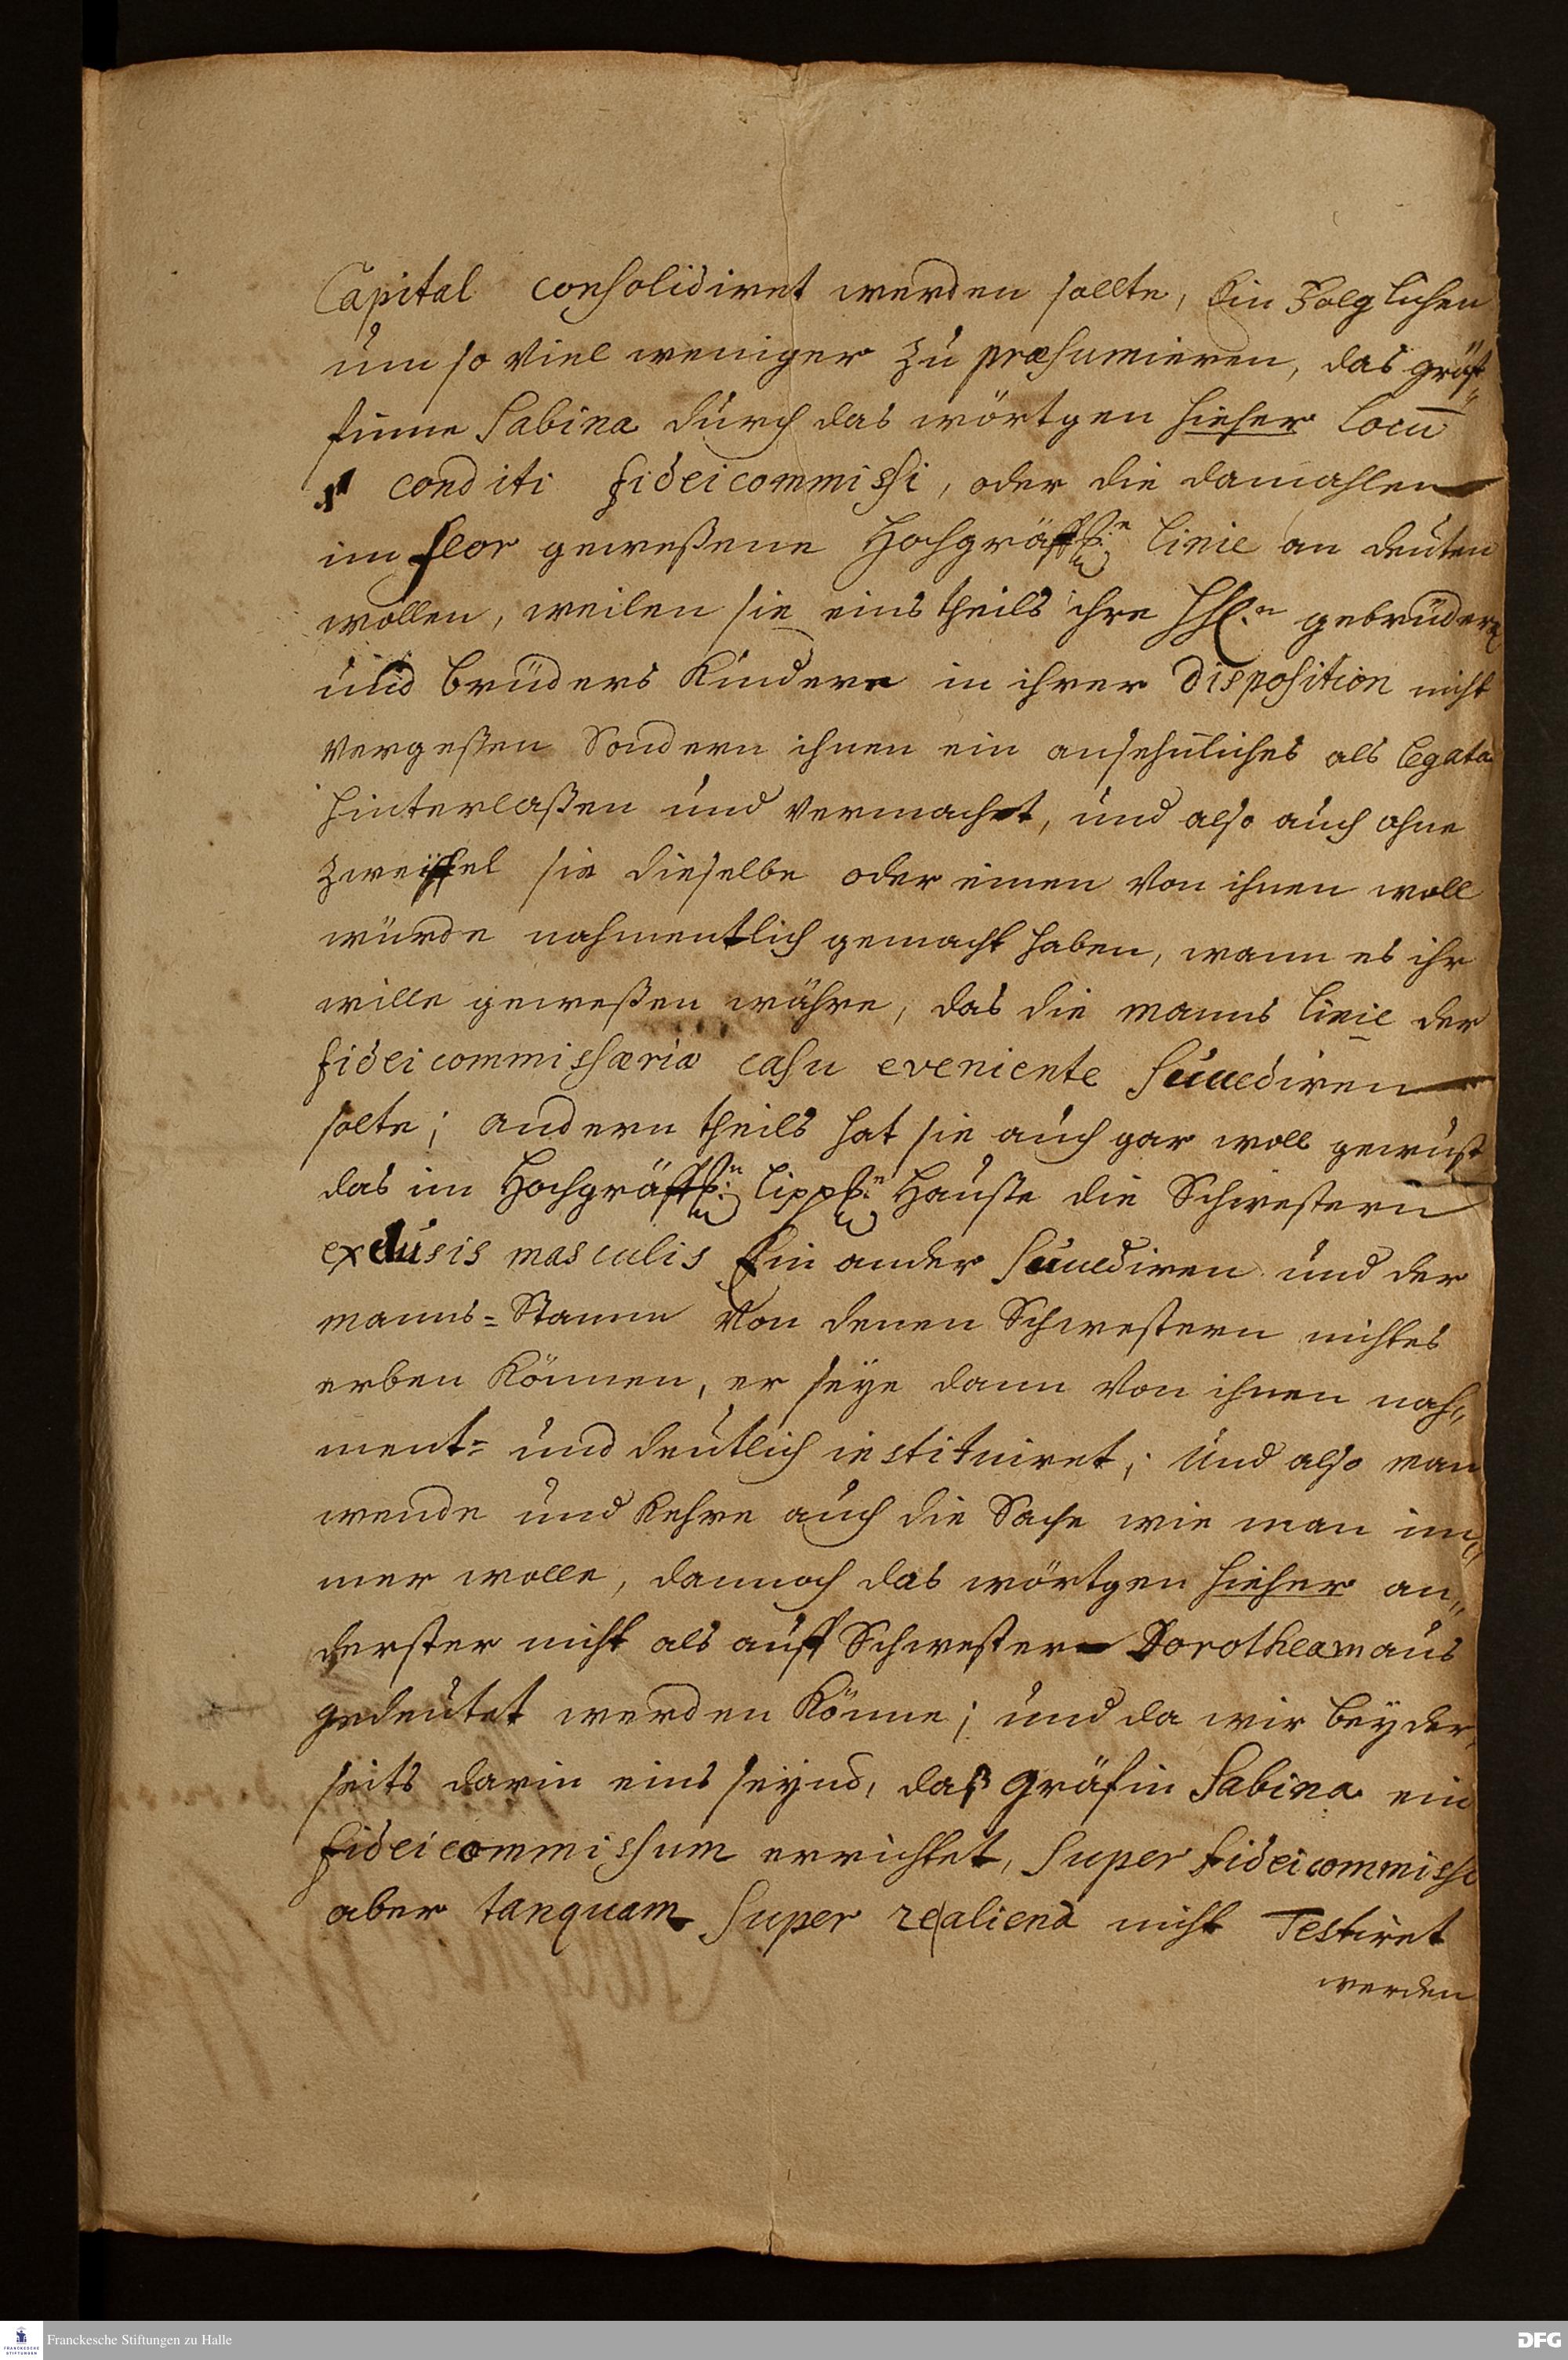 Capital consolidiret werden sollte, Ein Folglichen
um so viel weniger zu præsumieren, das gräf„
finne Sabina durch das wörtgen hieher locū
conditi fideicommissi, oder die damahlen
im flor geweßene Hochgräffl:n linie an deuten
wollen, weilen sie eins theils ihre gebrüdern
und brüders Kindern in ihrer disposition nicht
vergeßen Sondern ihnen ein ansehnliches als legata
hinterlaßen und vermachet, und also auch ohne
zweiffel sie dieselbe oder einen von ihnen woll
würde nahmentlich gemacht haben, wann es ihr
wille geweßen währe, das die manns linie der
fideicommissæria casu eveniente Succediren
solte; andern theils hat sie auch gar woll gewust
das im Hochgräffl:n lippl:n Hauße die Schwestern
exclusis masculis Ein ander Succediren und der
manns=Stamm von denen Schwestern nichtes
erben Können, er seye dann von ihnen nah„
ment= und deutlich instituiret; Und also man
wende und Kehre auch die Sache wie man im„
mer wolle, dannoch das wörtgen hieher an„
derster nicht als auff Schwester Dorotheam aus
gedeutet werden Könne; und da wir beyder„
seits darin eins seynd, daß gräfin Sabina ein
fideicommissum errichtet, Super fideicommisso
aber tanquam Super re aliena nicht Testiret
werden
Franckesche Stiftungen zu Halle
DFG
FRANCKESCHE
STIFTUNGEN